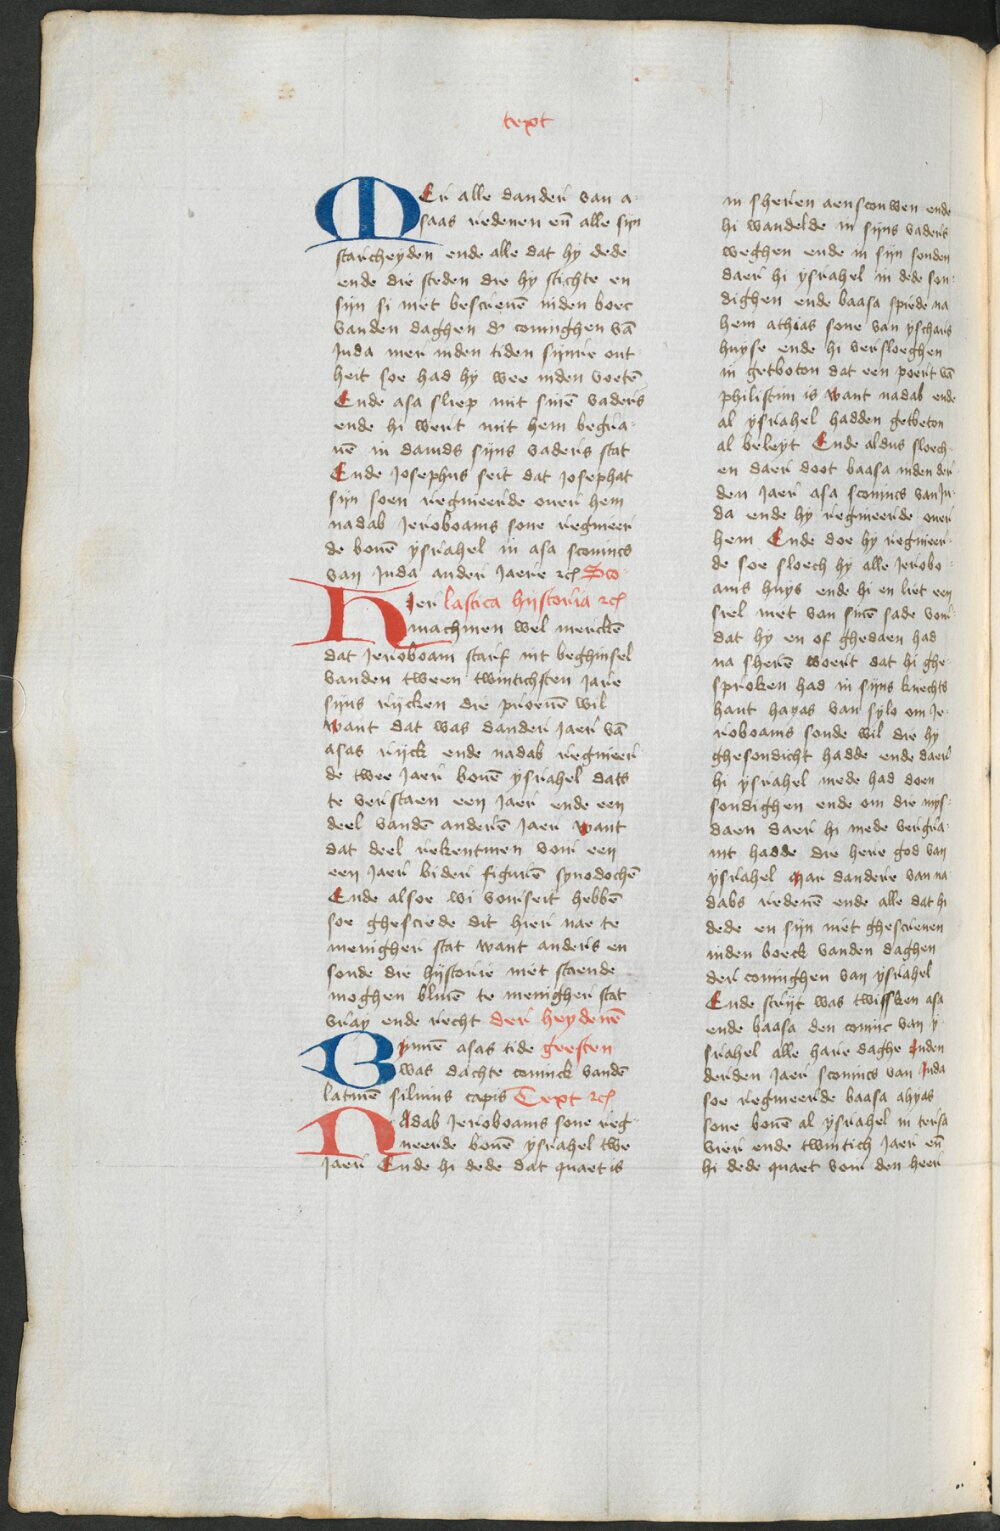 text
MEr alle dander van a-
saas redenen en̄ alle sijn
starcheyden ende alle dat hy dede
ende die steden die hy stichte en
sijn si niet bescreuē inden boec
vanden daghen d' coninghen vā
Juda mer inden tiden sijnre out
heit soe had hy wee inden voetē
Ende asa sliep mit sinē vaders
ende hi wert mit hem begra-
uē in dauids sijns vaders stat
Ende Josephus seit dat josephat
sijn soen regneerde ouer hem
nadab Jeroboams sone regneer
de bouē ysrahel in asa sconincs
van Juda ander jaere rcꝭ Sco
HIer lastica hijstoria rcꝭ
machmen wel merckē
dat Jeroboam starf int beghinsel
vanden tween twintichsten Jare
sijns rijcken die proeuē wil
want dat was dander jaer vā
asas rijck ende nadab regneer
de twee jaer bouē ysrahel dats
te verstaen een jaer ende een
deel vandē anderē jaer want
dat deel rekentmen voir een
een jaer bider figurē synodochē
Ende alsoe wi voirseit hebbē
soe ghesciede dit hier nae te
menigher stat want anders en
sonde die hijstorie niet staende
moghen bliuē te menigher stat
vray ende recht der heydenē
BYnnē asas tide geesten
was dachte coninck vandē
latinē siluius capis Text rcꝭ
NAdab Jeroboams sone reg-
neerde bouē ysrahel twe
jaer Ende hi dede dat quaet is
in sheren aenscouwen ende
hi wandelde in sijns vaders
weghen ende in sijn sonden
daer hi ysrahel in dede son-
dighen ende baasa spiede na
hem athias sone van yschars
huyse ende hi versloeghen
in getboton dat een poert vā
philistim is want nadab ende
al ysrahel hadden getbeton
al beleyt Ende aldus sloech-
en daer doot baasa inden der
den jaer asa sconincs van Ju-
da ende hy regneerde ouer
hem Ende doe hy regneer-
de soe sloech hy alle Jerobo-
ams huys ende hi en liet een
siel niet van sinē sade voir
dat hy en of ghedaen had
na sherē woert dat hi ghe-
sproken had in sijns knechts
hant hayas van sylo om Je-
roboams sonde wil die hy
ghesondicht hadde ende daer
hi ysrahel mede had doen
sondighen ende om die mys-
daen daer hi mede vergra-
mt hadde die here god van
ysrahel Mar dandere van na-
dabs redenē ende alle dat hi
dede en sijn niet ghescreuen
inden boeck vanden daghen
der coninghen van ysrahel
Ende strijt was twissken asa
ende baasa den coninc van y-
srahel alle hare daghe Inden
derden Jaer sconincs van Juda
soe regneerde baasa ahyas
sone bouē al ysrahel in tersa
vier ende twintich Jaer en̄
hi dede quaet voir den heer